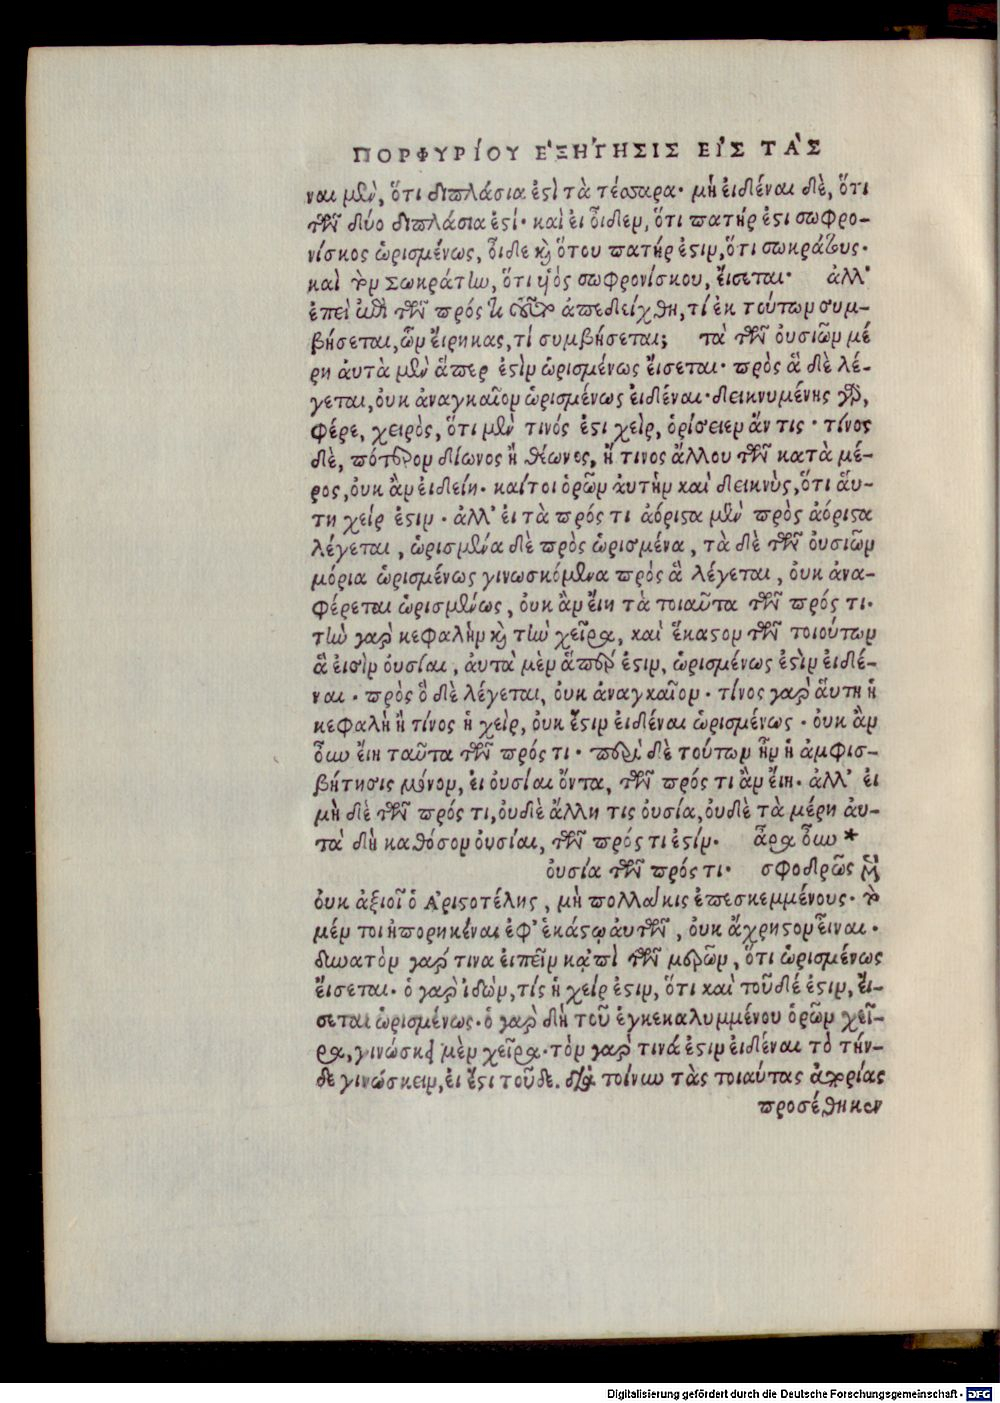 ΠΟΡΦΥΡΙΟΥ ΕΞΗΓΗΣΙΣ ΕΙΣ ΤΑΣ
ναι μὲν, ὅτι διπλάσια ἐστὶ τὰ τέσσαρα· μὴ εἰδέναι δὲ, ὅτι
τῶν δύο διπλάσια ἐστί· καὶ εἰ οἶδεν, ὅτι πατήρ ἐστι σωφρο-
νίσκος ὡρισμένως, οἶδε καὶ ὅτου πατήρ ἐστιν, ὅτι σωκράτους·
καὶ τὸν Σωκράτην, ὅτι υἱὸς σωφρονίσκου, εἴσεται· ἀλλ'
ἐπεὶ ἐπὶ τῶν πρός τι οὕτως ἀπεδείχθη, τί ἐκ τούτων συμ-
βήσεται, ὧν εἴρηκας, τί συμβήσεται; τὰ τῶν οὐσιῶν μέ
ρη αὐτὰ μὲν ἅπερ ἐστὶν ὡρισμένως εἴσεται· πρὸς ἃ δὲ λέ-
γεται, οὐκ ἀναγκαῖον ὡρισμένως εἰδέναι· δεικνυμένης γὰρ,
φέρε, χειρὸς, ὅτι μὲν τινός ἐστι χεὶρ, ὁρίσειεν ἄν τις· τίνος
δὲ, πότερον δίωνος ἢ θέωνος, ἤ τινος ἄλλου τῶν κατὰ μέ-
ρος, οὐκ ἂν εἰδείη· καίτοι ὁρῶν αὐτὴν καὶ δεικνὺς, ὅτι αὕ-
τη χείρ ἐστιν· ἀλλ' εἰ τὰ πρός τι ἀόριστα μὲν πρὸς ἀόριστα
λέγεται, ὡρισμένα δὲ πρὸς ὡρισμένα, τὰ δὲ τῶν οὐσιῶν
μόρια ὡρισμένως γινωσκόμενα πρὸς ἃ λέγεται, οὐκ ἀνα-
φέρεται ὡρισμένως, οὐκ ἂν εἴη τὰ τοιαῦτα τῶν πρός τι·
τὴν γὰρ κεφαλὴν καὶ τὴν χεῖρα, καὶ ἕκαστον τῶν τοιούτων
ἃ εἰσὶν οὐσίαι, αὐτὰ μὲν ἅπερ ἐστιν, ὡρισμένως ἐστὶν εἰδέ-
ναι· πρὸς ὃ δὲ λέγεται, οὐκ ἀναγκαῖον· τίνος γὰρ αὕτη ἡ
κεφαλὴ ἢ τίνος ἡ χεὶρ, οὐκ ἔστιν εἰδέναι ὡρισμένως· οὐκ ἂν
οὖν εἴη ταῦτα τῶν πρός τι· περὶ δὲ τούτων ἦν ἡ ἀμφισ-
βήτησις μόνον, εἰ οὐσίαι ὄντα, τῶν πρός τι ἂν εἴη· ἀλλ' εἰ
μὴ δὲ τῶν πρός τι, οὐδὲ ἄλλη τις οὐσία, οὐδὲ τὰ μέρη αὐ-
τὰ δὴ καθόσον οὐσίαι, τῶν πρός τι ἐστίν. ἆρα οὖν *
οὐσία τῶν πρός τι· σφοδρῶς
οὐκ ἀξιοῖ ὁ Ἀριστοτέλης, μὴ πολλάκις ἐπεσκεμμένους· τὸ
μέν τοι ἠπορηκέναι ἐφ' ἑκάστῳ αὐτῶν, οὐκ ἄχρηστον εἶναι·
δυνατὸν γάρ τινα εἰπεῖν κἀπὶ τῶν μερῶν, ὅτι ὡρισμένως
εἴσεται· ὁ γὰρ ἰδὼν, τίς ἡ χείρ ἐστιν, ὅτι καὶ τοῦδέ ἐστιν, εἴ-
σεται ὡρισμένως· ὁ γὰρ δὴ τοῦ ἐγκεκαλυμμένου ὁρῶν χεῖ-
ρα, γινώσκει μὲν χεῖρα· τὸν γὰρ τινά ἐστιν εἰδέναι τὸ τήν-
δε γινώσκειν, εἰ ἔστι τοῦδε. διὰ τοίνυν τὰς τοιαύτας
προσέθηκεν
Digitalisierung gefördert durch die Deutsche Forschungsgemeinschaft - DFG